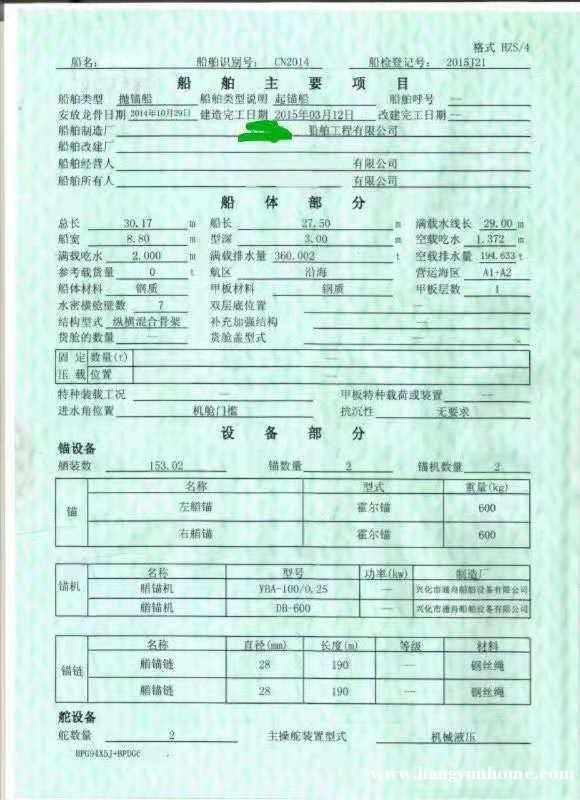 格式 HZS/4
船名: 船舶识别号: CN2014 船检登记号: 2015J21
船舶主要项目
船舶类型 抛锚船 船舶类型说明 起锚船 船舶呼号 —
安放龙骨日期 2014年10月29日 建造完工日期 2015年03月12日 改建完工日期 —
船舶制造厂 船舶工程有限公司
船舶改建厂
船舶经营人 有限公司
船舶所有人 有限公司
船体部分
总长 30.17 m 船长 27.50 m 满载水线长 29.00 m
船宽 8.80 m 型深 3.00 m 空载吃水 1.372 m
满载吃水 2.000 m 满载排水量 360.002 t 空载排水量 194.633 t
参考载货量 0 t 航区 沿海 营运海区 A1+A2
船体材料 钢质 甲板材料 钢质 甲板层数 1
水密横舱壁数 7 双层底位置 —
结构型式 纵横混合骨架 补充加强结构 —
货舱的数量 — 货舱盖型式 —
固定 数量(t) —
压载 位置 —
特种装载工况 — 甲板特种载荷或装置 —
进水角位置 机舱门槛 抗沉性 无要求
设备部分
锚设备
舾装数 153.02 锚数量 2 锚机数量 2
名称 型式 重量(kg)
锚 左艏锚 霍尔锚 600
右艏锚 霍尔锚 600
名称 型号 功率(kw) 制造厂
锚机 艏锚机 YBA-100/0.25 — 兴化市通舟船舶设备有限公司
艏锚机 DB-600 — 兴化市通舟船舶设备有限公司
名称 直径(mm) 长度(m) 等级 材料
锚链 艏锚链 28 190 — 钢丝绳
艏锚链 28 190 — 钢丝绳
舵设备
舵数量 2 主操舵装置型式 机械液压
www.hangyunhome.com